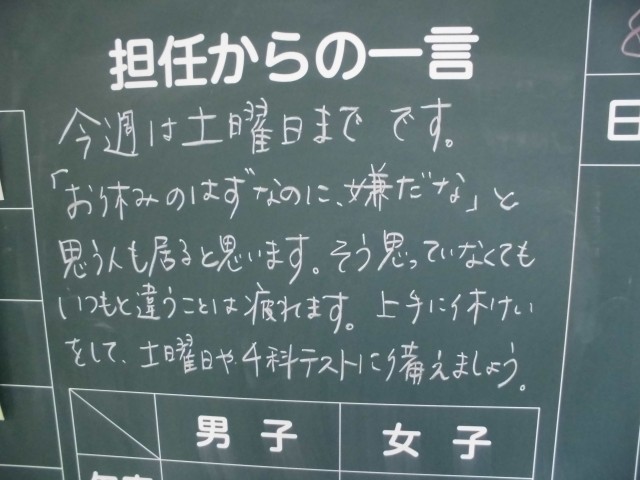 担任からの一言
今週は土曜日までです。
「お休みのはずなのに、嫌だな」と
思う人も居ると思います。そう思っていなくても
いつもと違うことは疲れます。上手に休けい
をして、土曜日や、4科テストに備えましょう。
男子 女子
日